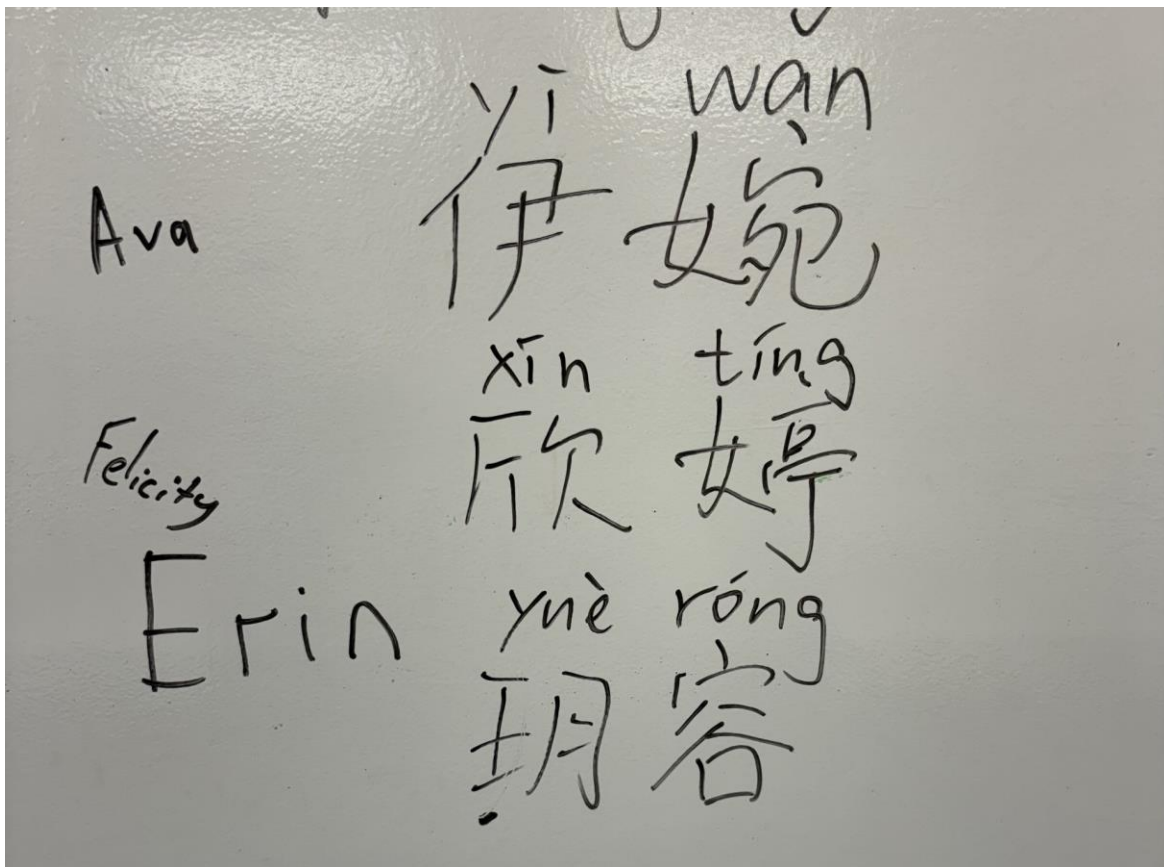 yī wǎn
Ava 伊婉
xīn tíng
Felicity 欣婷
yuè róng
Erin 玥容